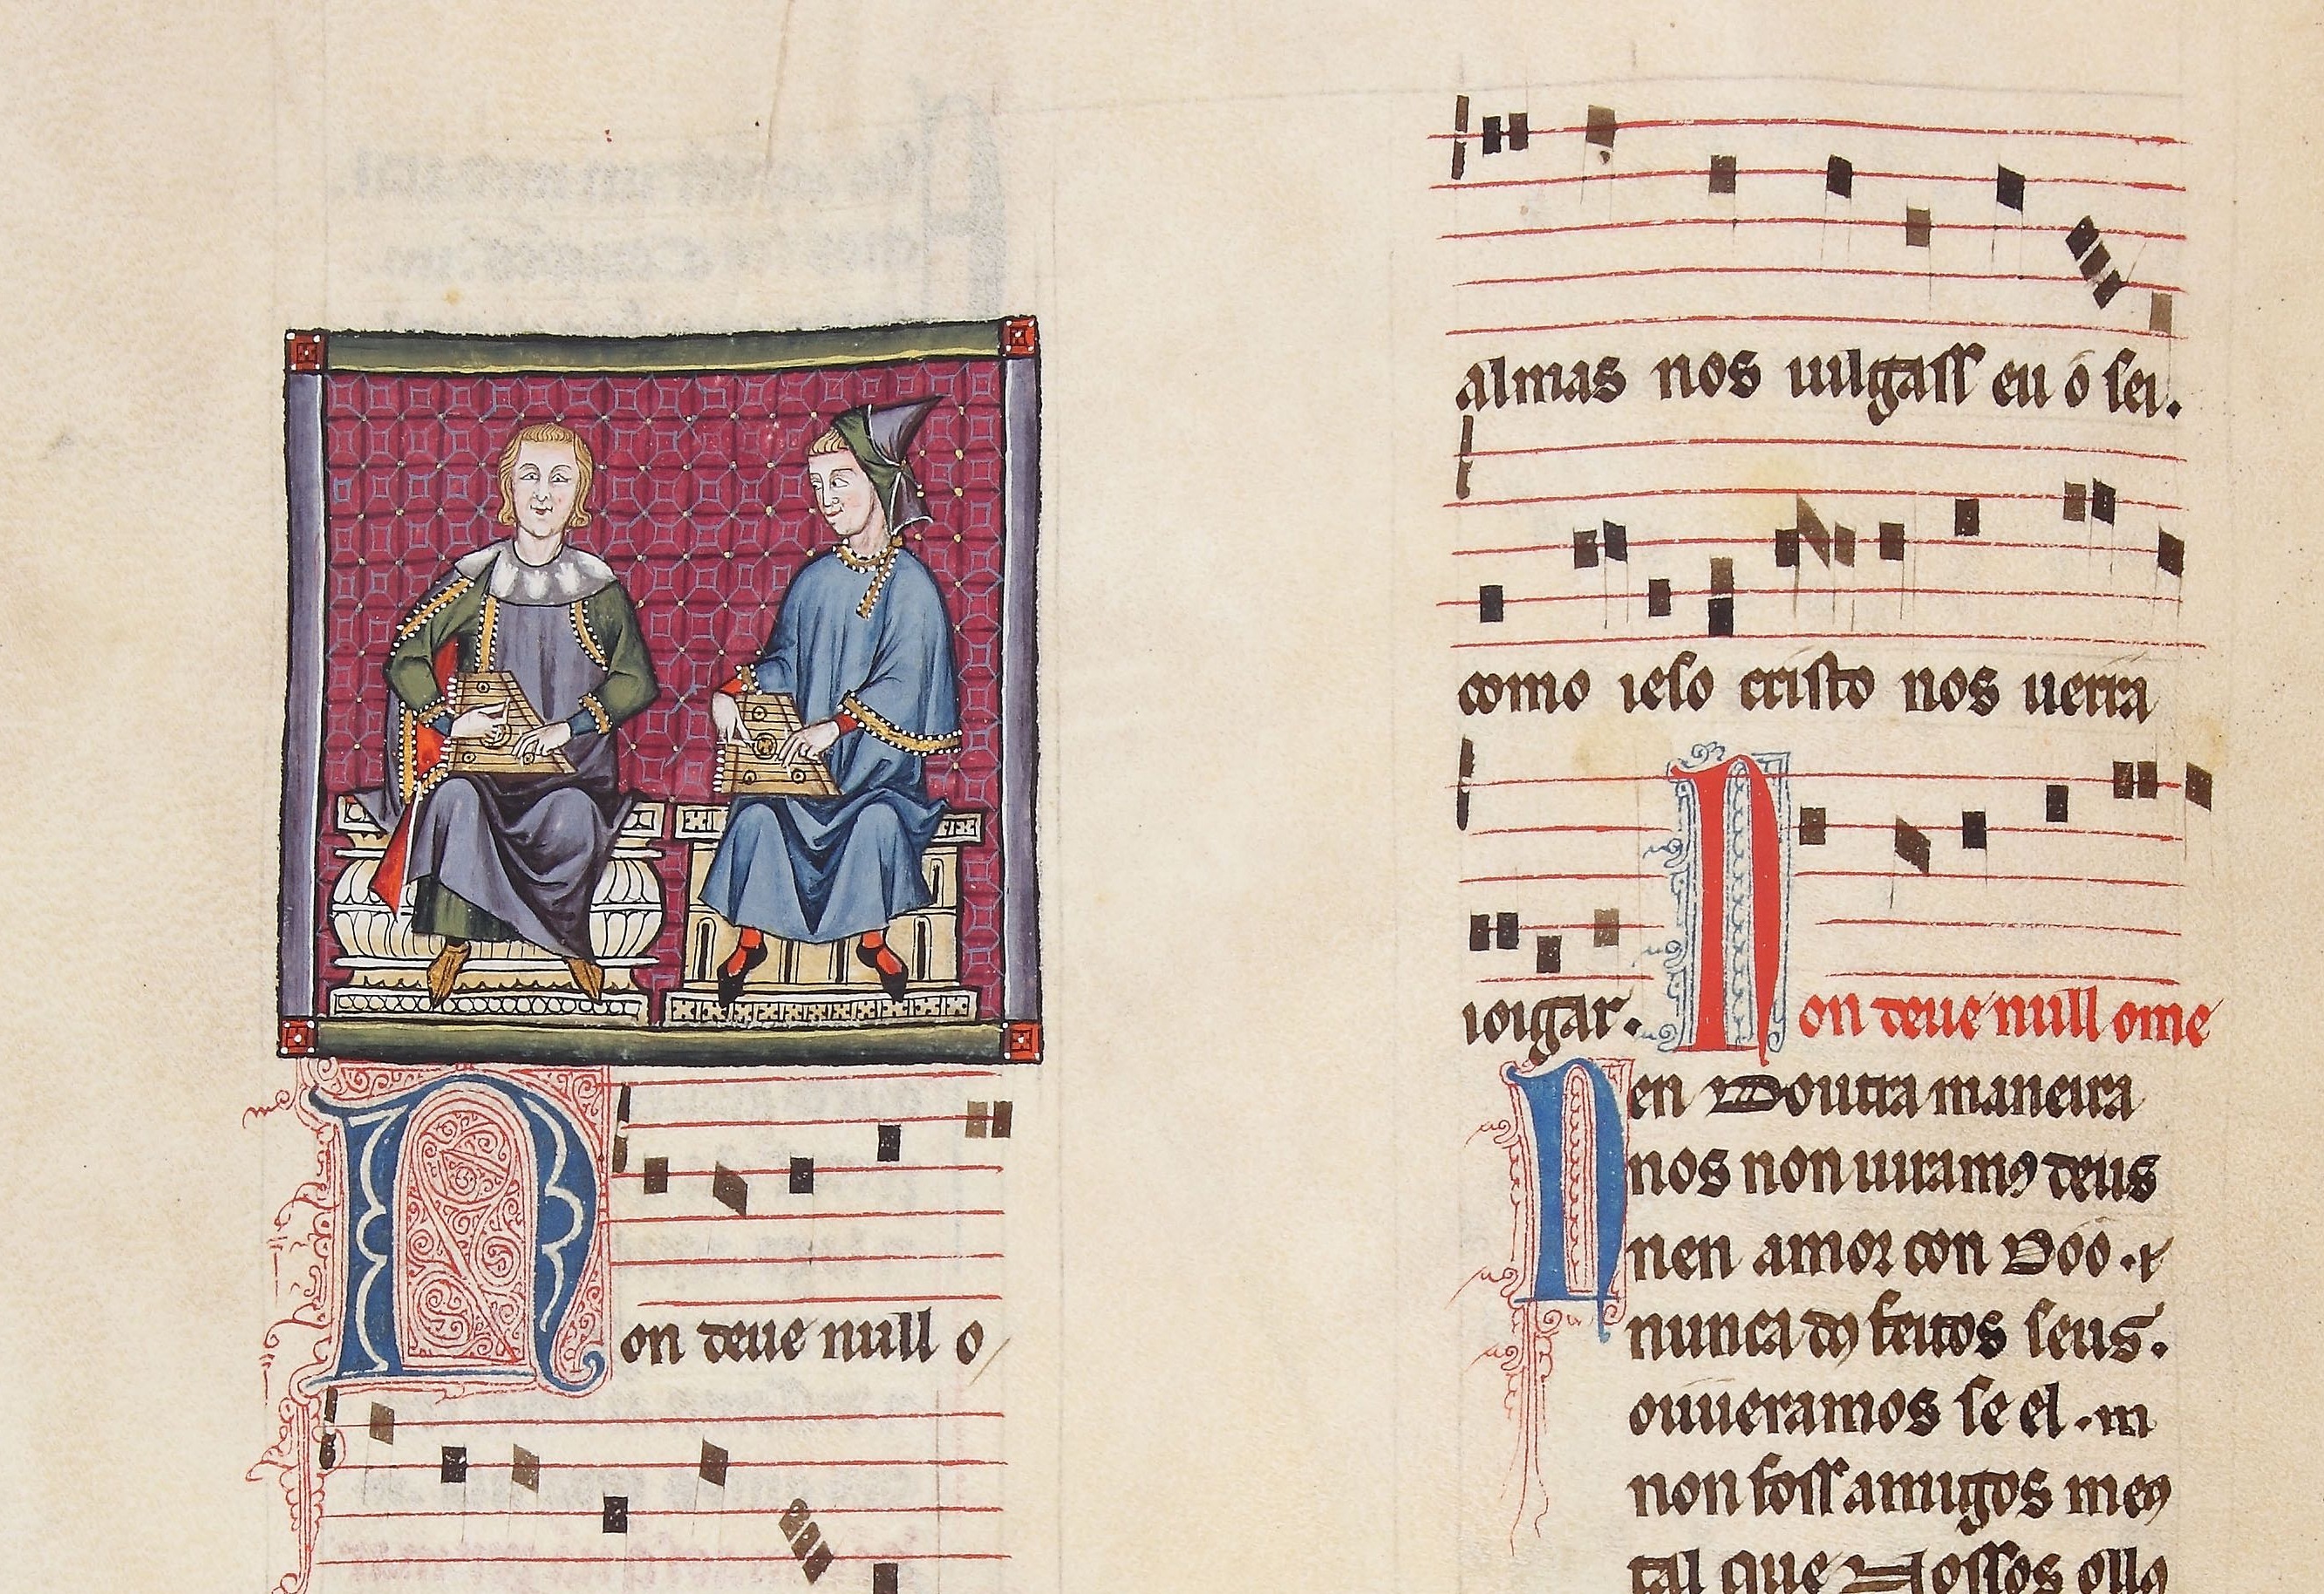 Non deue null o
almas nos uilgass eu o sei.
como ieso cristo nos uerra
ioigar. Non deue null ome
Nen Doutra maneira
nos non uiramꝯ deus
nen amor con Doo · ⁊
nunca dꝯ feitos seus.
ouueramos se el · m
non foss amigos meꝯ
tal que Nossos ollꝯ